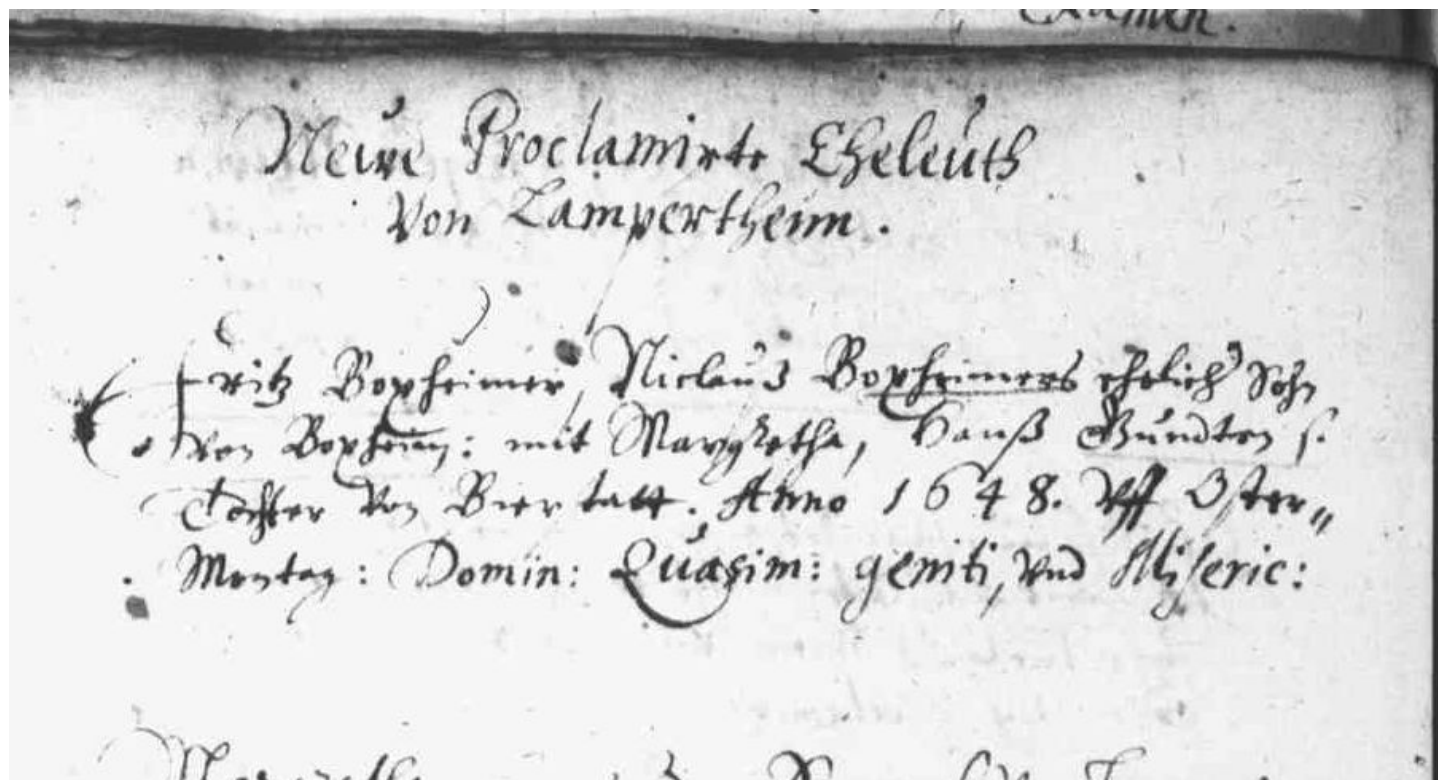 Examen.
Neuve Proclamirte Eheleuth
Von Lampertheim.
Fritz Boxheimer, Niclauß Boxheimers ehrlich Sohn
Von Boxheim: mit Margretha, Hanß Gundten s.
Tochter Von Bierstatt. Anno 1648. Vff Oster„
Montag: Domin: Quasim: geniti, vnd Miseric: